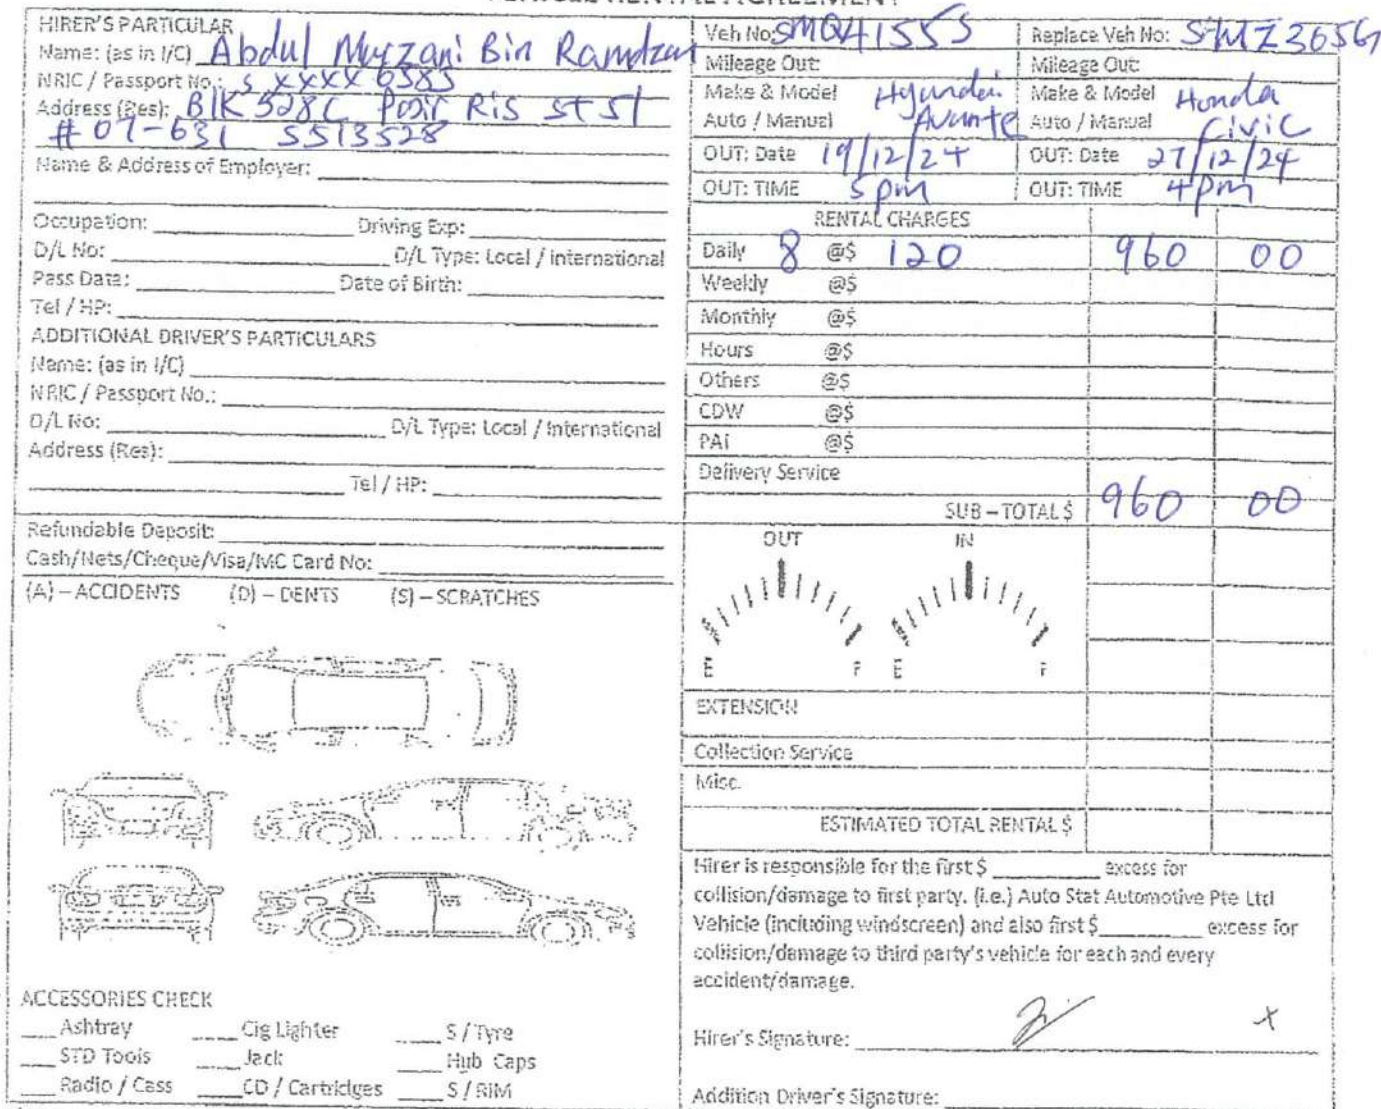 VEHICLE RENTAL AGREEMENT
HIRER'S PARTICULAR
Name: (as in I/C) Abdul Murzani Bin Ramdzan
NRIC / Passport No.: S XXXX 6585
Address (Res): Blk 528C Pasir Ris St 51
#07-631 S513528
Name & Address of Employer:
Occupation: Driving Exp:
D/L No: D/L Type: Local / International
Pass Date: Date of Birth:
Tel / HP:
ADDITIONAL DRIVER'S PARTICULARS
Name: (as in I/C)
NRIC / Passport No.:
D/L No: D/L Type: Local / International
Address (Res):
Tel / HP:
Refundable Deposit:
Cash/Nets/Cheque/Visa/MC Card No:
(A) – ACCIDENTS (D) – DENTS (S) – SCRATCHES
ACCESSORIES CHECK
Ashtray Cig Lighter S / Tyre
STD Tools Jack Hub Caps
Radio / Cass CD / Cartridges S / RIM
Veh No: SMQ4155S Replace Veh No: SMZ3656G
Mileage Out: Mileage Out:
Make & Model Hyundai Make & Model Honda
Auto / Manual Avante Auto / Manual Civic
OUT: Date 19/12/24 OUT: Date 27/12/24
OUT: TIME 5pm OUT: TIME 4pm
RENTAL CHARGES
Daily 8 @$ 120 960 00
Weekly @$
Monthly @$
Hours @$
Others @$
CDW @$
PAI @$
Delivery Service
SUB – TOTAL $ 960 00
OUT IN
E F E F
EXTENSION
Collection Service
Misc.
ESTIMATED TOTAL RENTAL $
Hirer is responsible for the first $ excess for
collision/damage to first party. (i.e.) Auto Stat Automotive Pte Ltd
Vehicle (including windscreen) and also first $ excess for
collision/damage to third party's vehicle for each and every
accident/damage.
Hirer's Signature: x
Addition Driver's Signature: